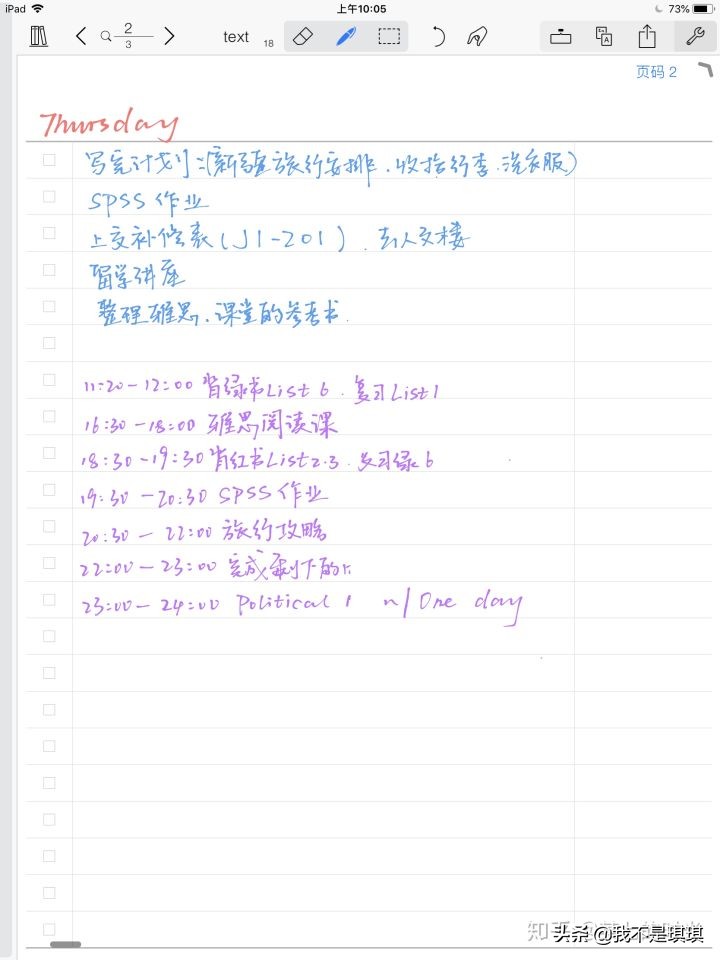 iPad 上午10:05 73%
2
3
text 18
页码 2
Thursday
写完计划:(新疆旅行安排、收拾行李、洗衣服)
SPSS 作业
上交补偿表(J1-201)、去人文楼
留学讲座
整理雅思、课堂的参考书.
11:20-12:00 背绿书List 6 . 复习List1
16:30-18:00 雅思阅读课
18:30-19:30 背红书List2.3 . 复习绿6
19:30-20:30 SPSS 作业
20:30-22:00 旅行攻略
22:00-23:00 完成剩下的
23:00-24:00 Political 1 n/One day
知乎
头条 @我不是琪琪